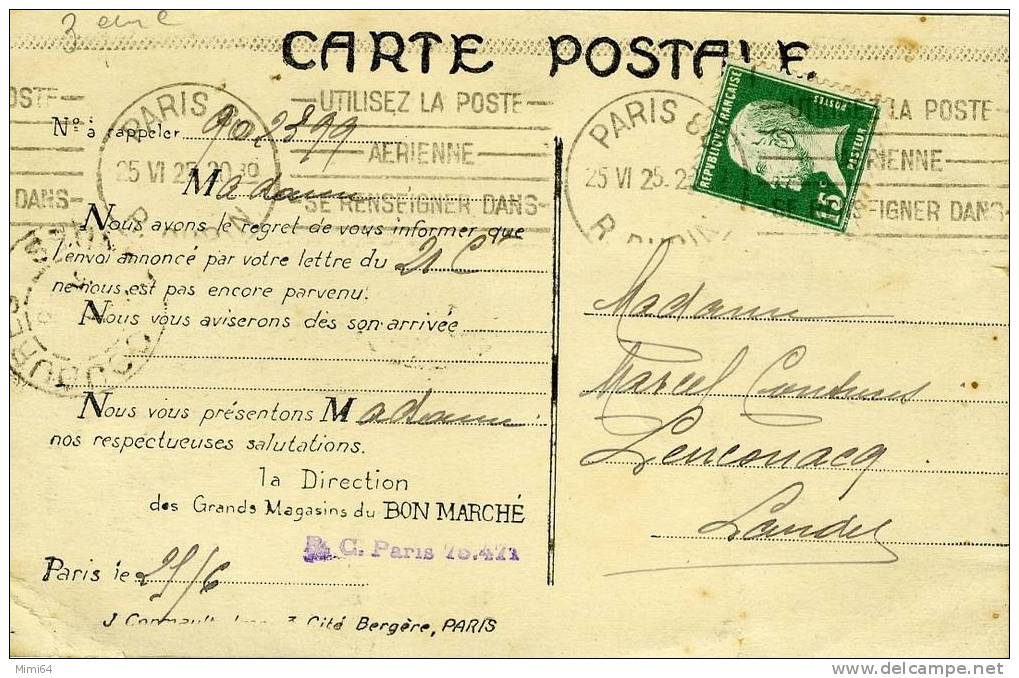 3 eme
CARTE POSTALE.
PARIS
25 VI 25 20 30
UTILISEZ LA POSTE
AERIENNE
SE RENSEIGNER DANS
PARIS 8
25 VI 25
UTILISEZ LA POSTE
AERIENNE
SEIGNER DANS
REPVBLIQVE FRANÇAISE
POSTES
PASTEUR
15c
Nº à rappeler 90,2899
Madame
Nous avons le regret de vous informer que
l'envoi annoncé par votre lettre du 21 Ct
ne nous est pas encore parvenu.
Nous vous aviserons dès son arrivée
Nous vous présentons Madame
nos respectueuses salutations.
la Direction
des Grands Magasins du BON MARCHÉ
R. C. Paris 78.471
Paris le 25/6
Cité Bergère, PARIS
Madame
Marcel
Lencouacq
Landes
Mimi64
delcampe.net